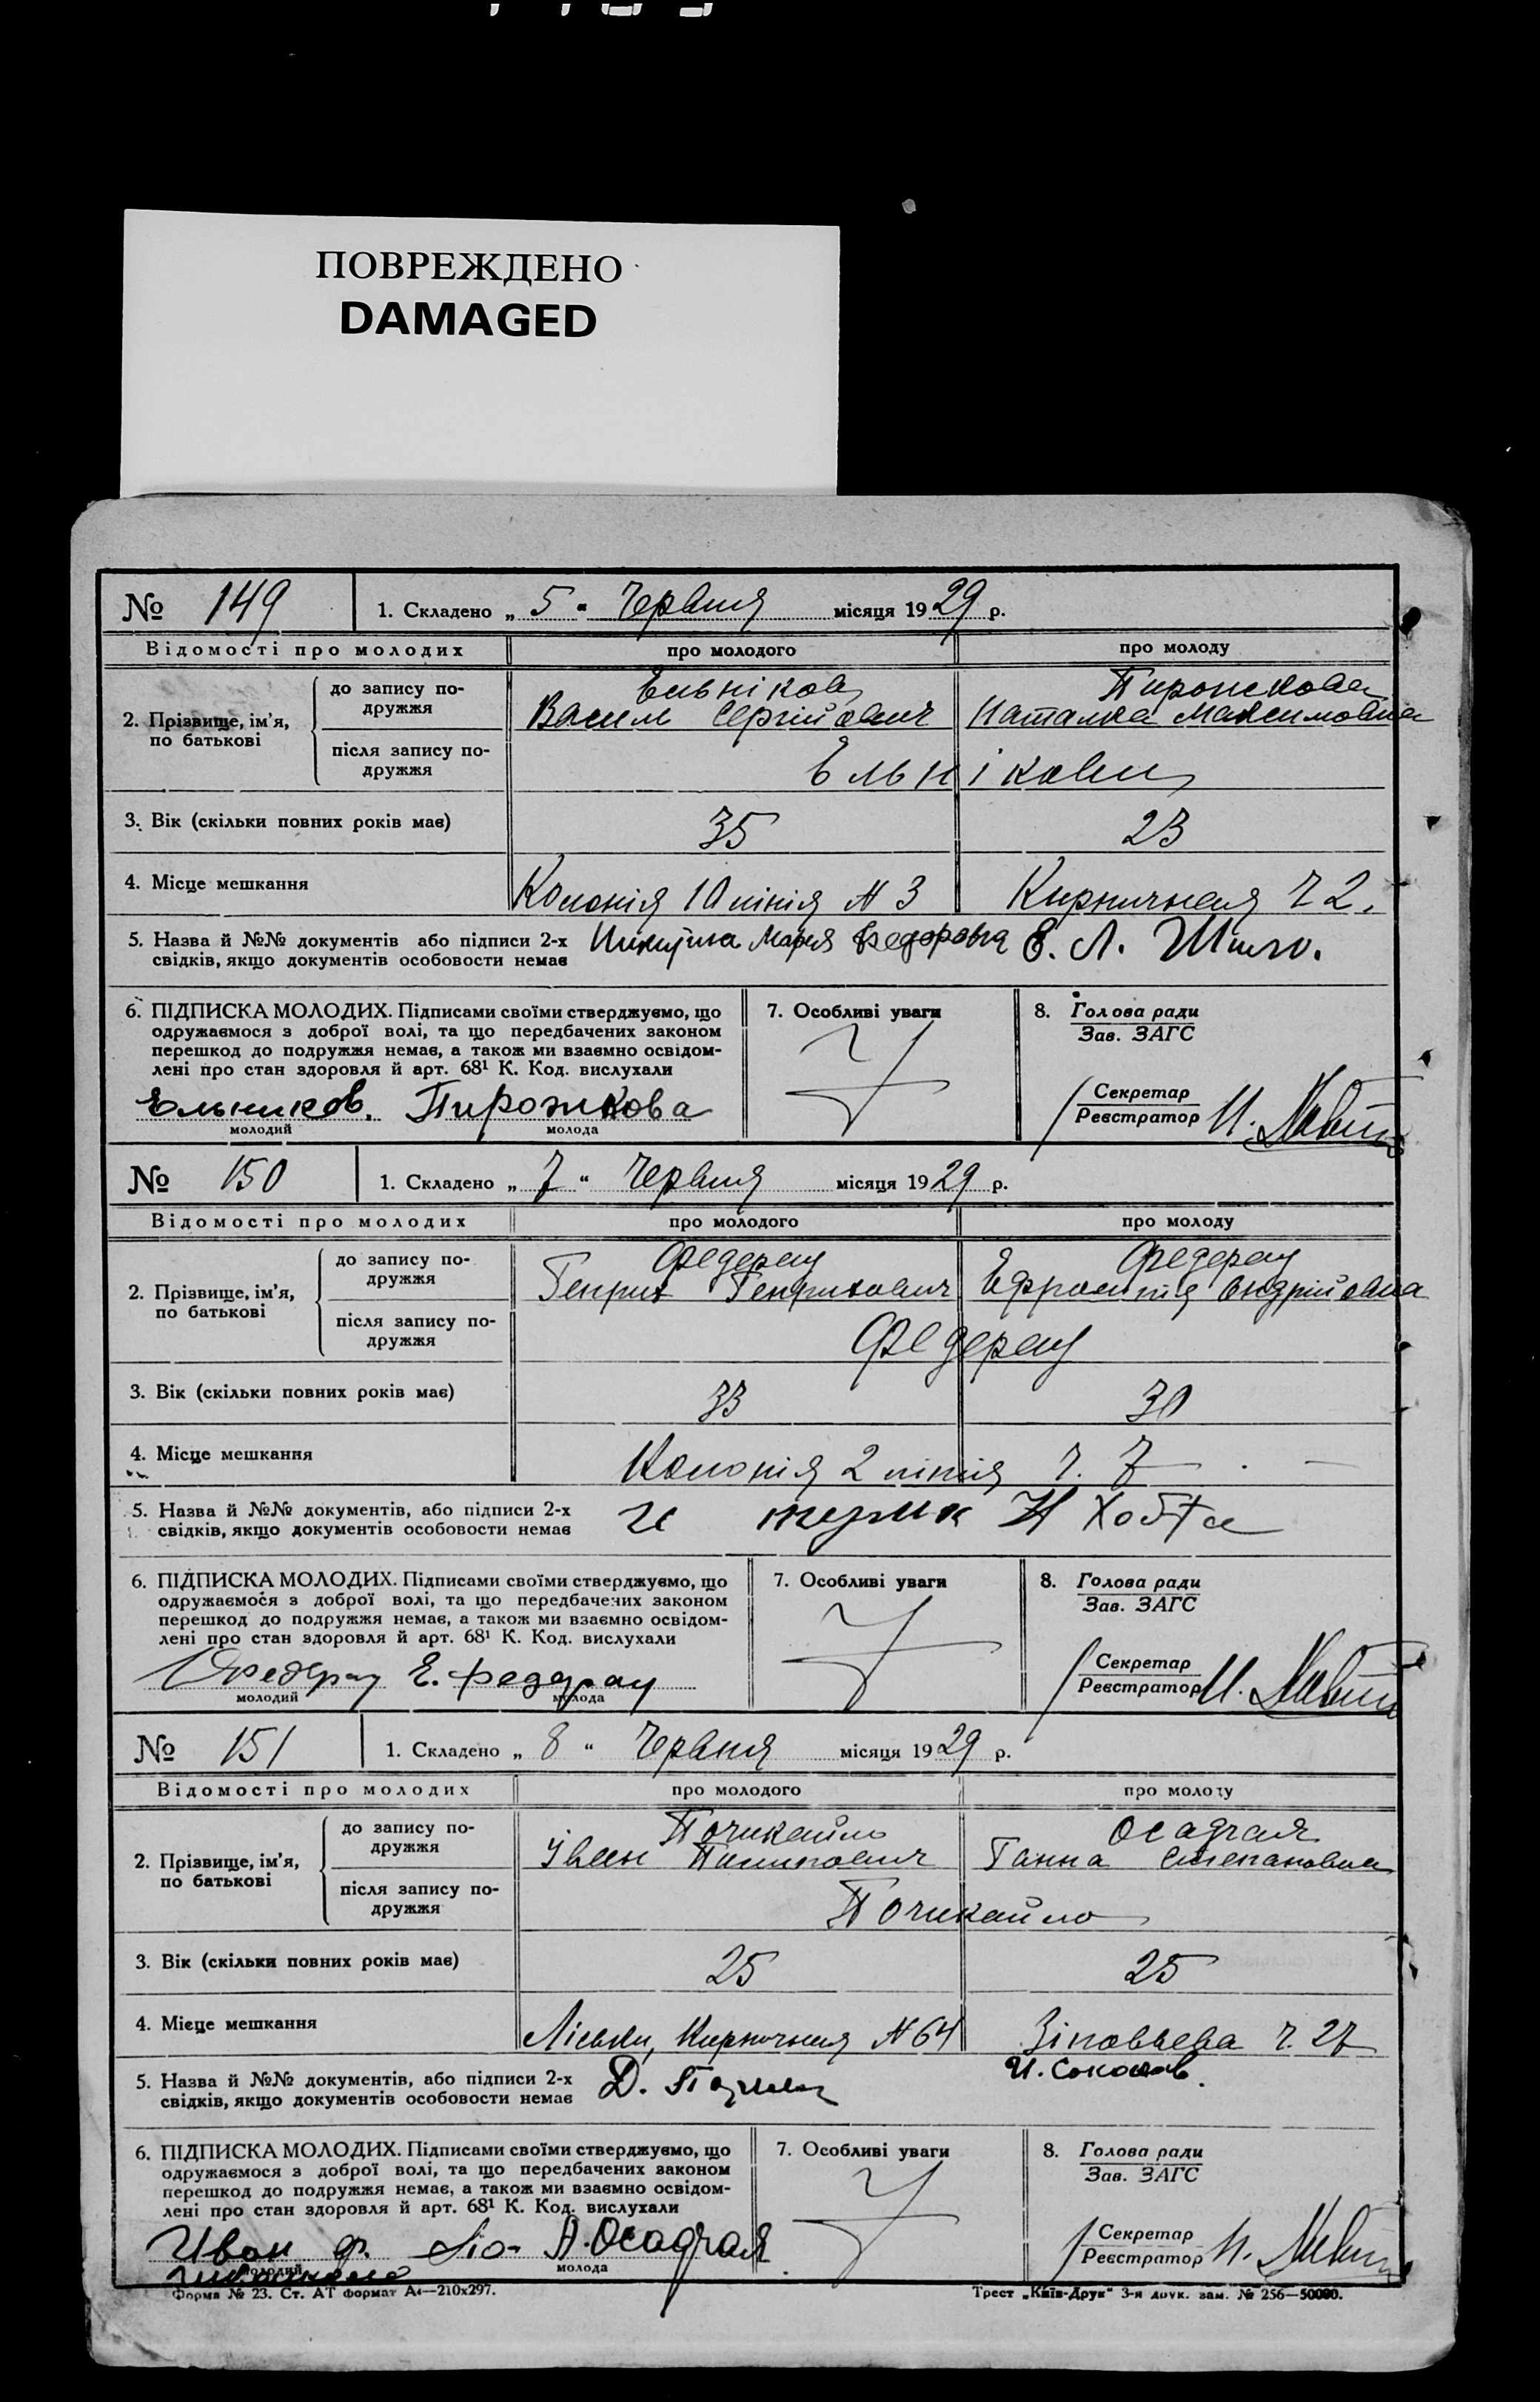 ПОВРЕЖДЕНО
DAMAGED
№ 149 1. Складено „ 5 “ Червня місяця 1929 р.
Відомості про молодих про молодого про молоду
2. Прізвище, ім’я, по батькові
до запису подружжя
Ельніков Пирожкова
Василь Сергійович Наталка Максимовна
після запису подружжя
Ельнікови
3. Вік (скільки повних років має) 35 23
4. Місце мешкання Колонія 10 лінія № 3 Кирпичная ч 2.
5. Назва й №№ документів або підписи 2-х Марія Федоровна Е. Л.
свідків, якщо документів особовости немає
6. ПІДПИСКА МОЛОДИХ. Підписами своїми стверджуємо, що 7. Особливі уваги 8. Голова ради
одружаємося з доброї волі, та що передбачених законом Зав. ЗАГС
перешкод до подружжя немає, а також ми взаємно освідом-
лені про стан здоровля й арт. 68¹ К. Код. вислухали
Секретар
Ельников. Пирожкова Реєстратор
молодий молода
№ 150 1. Складено „ 7 “ Червня місяця 1929 р.
Відомості про молодих про молодого про молоду
2. Прізвище, ім’я, по батькові
до запису подружжя
Федерау Федерау
Генрих Генрихович Ефросинія Андрійовна
після запису подружжя
Федерау
3. Вік (скільки повних років має) 33 30
4. Місце мешкання Колонія 2 лінія ч. 7
5. Назва й №№ документів, або підписи 2-х Н Хобта
свідків, якщо документів особовости немає
6. ПІДПИСКА МОЛОДИХ. Підписами своїми стверджуємо, що 7. Особливі уваги 8. Голова ради
одружаємося з доброї волі, та що передбачених законом Зав. ЗАГС
перешкод до подружжя немає, а також ми взаємно освідом-
лені про стан здоровля й арт. 68¹ К. Код. вислухали
Секретар
Федерау Е. Федерау Реєстратор
молодий молода
№ 151 1. Складено „ 8 “ Червня місяця 1929 р.
Відомості про молодих про молодого про молоду
2. Прізвище, ім’я, по батькові
до запису подружжя
Почикайло Осадчая
Іван Пилипович Ганна Степановна
після запису подружжя
Почикайло
3. Вік (скільки повних років має) 25 25
4. Місце мешкання Ліськи, Кирпичная № 64 Зіновьева ч. 27
5. Назва й №№ документів, або підписи 2-х Д. И. Соколов.
свідків, якщо документів особовости немає
6. ПІДПИСКА МОЛОДИХ. Підписами своїми стверджуємо, що 7. Особливі уваги 8. Голова ради
одружаємося з доброї волі, та що передбачених законом Зав. ЗАГС
перешкод до подружжя немає, а також ми взаємно освідом-
лені про стан здоровля й арт. 68¹ К. Код. вислухали
Секретар
Иван ф. А. Осадчая Реєстратор
молодий молода
Форма № 23. Ст. АТ формат А4—210х297. Трест „Київ-Друк“ 3-я друк. зам. № 256—50000.